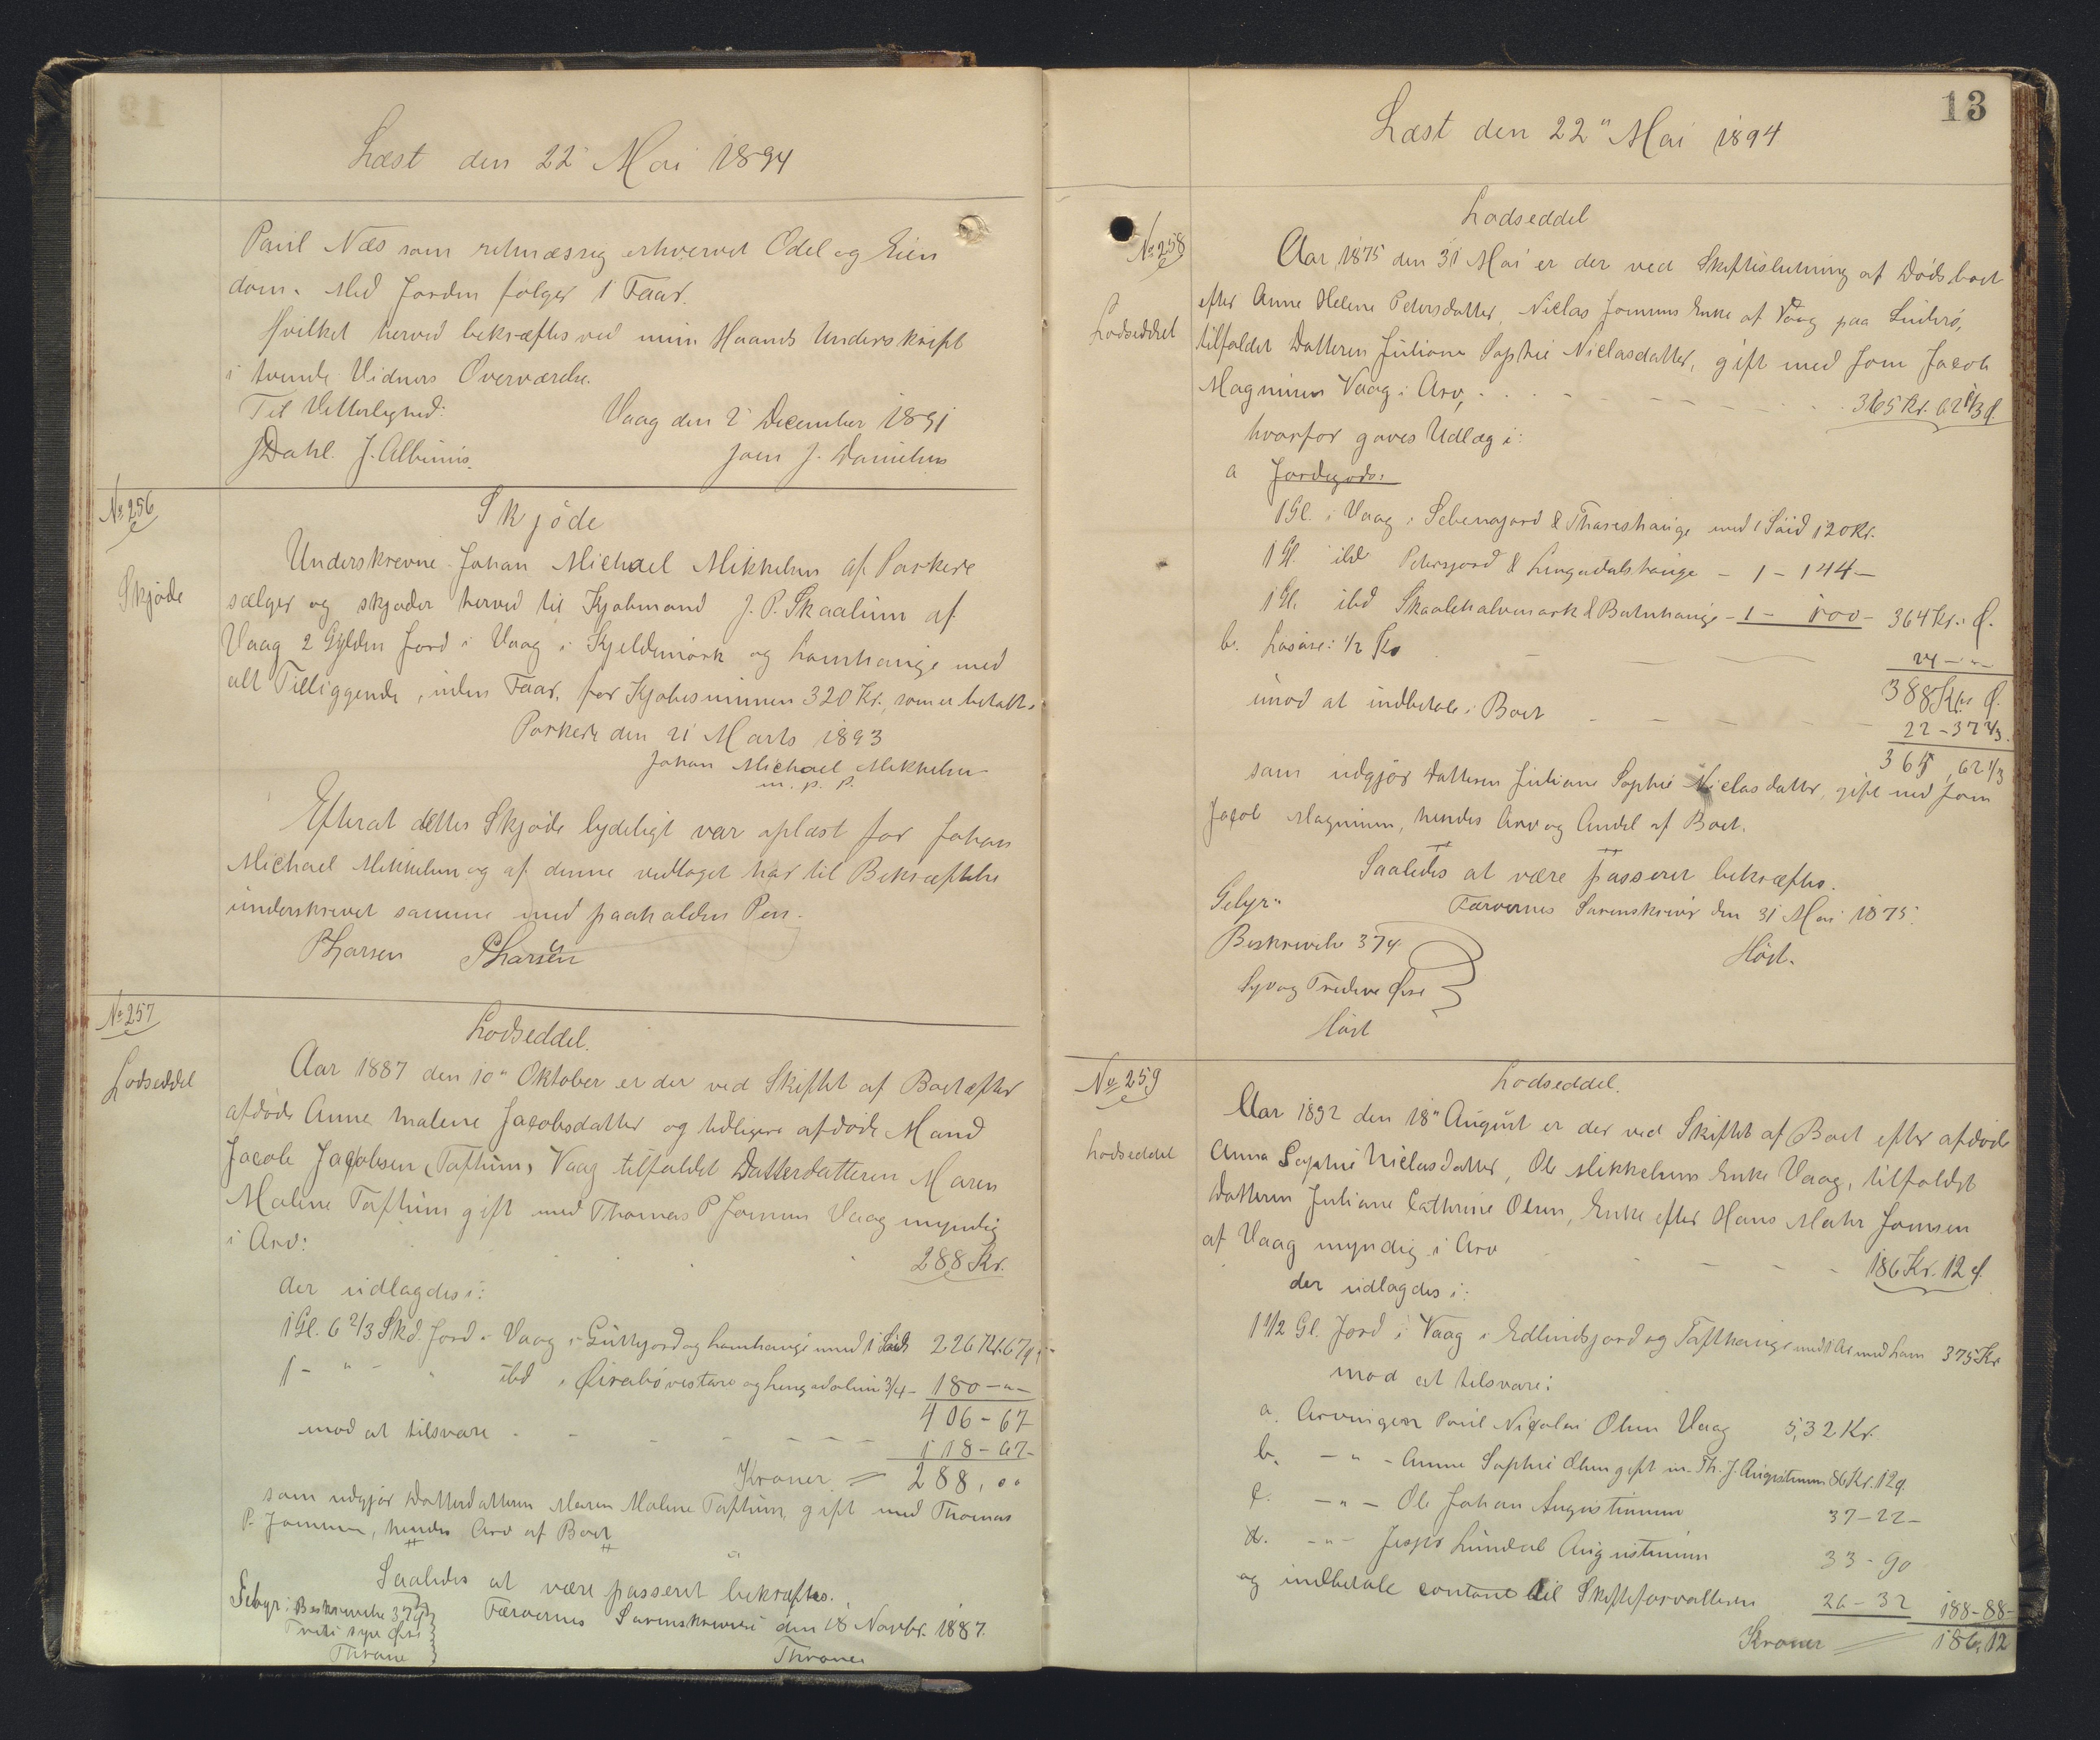 Læst den 22 Mai 1894
Poul Næs som retmæssig erhvervet Odel og Eien
dom. Med Jorden følger 1 Faar.
Hvilket herved bekræftes ved min Haands Underskrift
i tvende Vidners Overværelse.
Til Vitterlighed:
Vaag den 2 December 1891
J Dahl. J. Albinus.
Joen J. Danielsen
No 256
Skjøde
Skjøde
Underskrevne Johan Michael Mikkelsen af Porkere
sælger og skjøder herved til Kjøbmand J. P. Skaalum af
Vaag 2 Gylden Jord i Vaag i Kjeldemørk og Lamhauge med
alt Tilliggende, uden Faar, for Kjøbesummen 320 Kr., som er betalt.
Porkere den 21 Marts 1893
Johan Michael Mikkelsen
m. p. P.
Efterat dette Skjøde lydeligt var oplæst for Johan
Michael Mikkelsen og af denne vedtaget har til Bekræftelse
underskrevet samme med paaholden Pen.
P Larsen P Larsen
No 257
Lodseddel
Lodseddel.
Aar 1887 den 10" Oktober er der ved Skiftet af Boet efter
afdøde Anne Malene Jacobsdatter og tidligere afdøde Mand
Jacob Jacobsen (Toftum) Vaag tilfaldet Datterdatteren Maren
Malene Toftum gift med Thomas P Joensen Vaag myndig
i Arv:
288 Kr.
der udlagdes i:
1 Gl. 6 2/3 Skd. Jord i Vaag i Guttejord og Lamhauge med 1 Lam 226 Kr. 67 ø.
1 - " - " ibd i Øirabö vestare og Lengadalin 3/4 - 180 - " -
406 - 67
mod at tilsvare - - - - - - 118 - 67 -
Kroner = 288, 00
som udgjør Datterdatteren Maren Malene Toftum, gift med Thomas
P. Joensen, hendes Arv af Boet
Saaledes at være passeret bekræftes.
Gebyr: Beskrivelse 37 ø
Færøernes Sorenskriveri den 18 Novbr. 1887.
Treti syv Øre
Throne
Throne
13
Læst den 22" Mai 1894
No 258
Lodseddel
Lodseddel
Aar 1875 den 31 Mai er der ved Skiftesslutning af Dødsboet
efter Anne Helene Petersdatter, Niclas Joensens Enke af Vaag paa Suderø,
tilfaldet Datteren Juliane Sophie Niclasdatter, gift med Joen Jacob
Magnusen Vaag i Arv, - - - - 365 Kr. 62 1/3 ø.
hvorfor gaves Udlæg i:
a Jordegods:
1 Gl. i Vaag i Sebenajord & Thareshauge med 1 Søid 120 Kr.
1 Gl. ibd Petersjord & Lengadalshauge - 1 - 144 -
1 Gl. ibd Skaalehalvmark & Botnhauge - 1 - 100 - 364 Kr. " ø.
b. Løsøre: 1/2 Ko - - - 24 - " -
388 Kr. " ø.
imod at indbetale i Boet - - - - 22 - 37 2/3.
365, 62 1/3
som udgjør Datteren Juliane Sophie Niclasdatter, gift med Joen
Jacob Magnusen, hendes Arv og Andel af Boet.
Saaledes at være passeret bekræftes.
Gebyr"
Færøernes Sorenskriveri den 31 Mai 1875.
Beskrivelse 37 ø.
Høst.
Syv og Tredive Øre
Høst
No 259
Lodseddel
Lodseddel.
Aar 1892 den 18" August er der ved Skiftet af Boet efter afdøde
Anna Sophie Niclasdatter, Ole Mikkelsens Enke Vaag, tilfaldet
Datteren Juliane Cathrine Olsen, Enke efter Hans Mohr Joensen
af Vaag myndig i Arv - - - - 186 Kr. 12 ø.
der udlagdes i:
1 1/2 Gl. Jord i Vaag i Edlindsjord og Tofthauge med 1 Aa med Lam 375 Kr
mod at tilsvare:
a. Arvingen Poul Nicolai Olsen Vaag 5,32 Kr.
b. - " - Anne Sophie Olsen gift m. Th. J. Augustinsen 86 Kr. 12 ø.
c. - " - Ole Johan Augustinsen 37 - 22 -
d. - " - Jesper Lundal Augustinsen 33 - 90
og indbetale contant til Skifteforvalteren 26 - 32 188 - 88 -
Kroner = 186,12